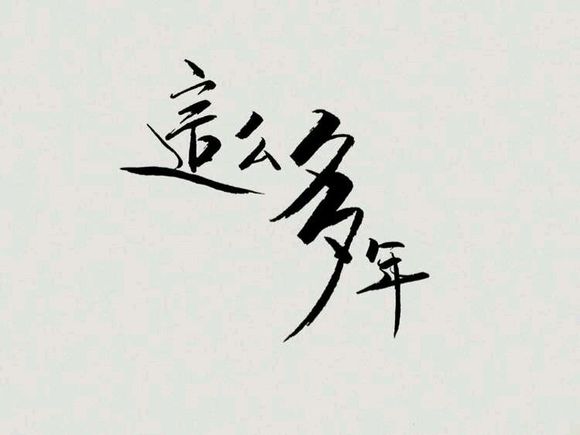 這么多年